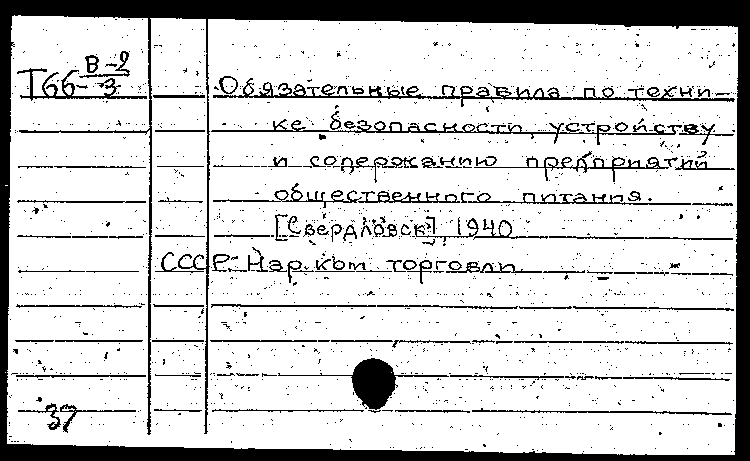 Т66 В-2/3
Обязательные правила по техни-
ке безопасности, устройству
и содержанию предприятий
общественного питания.
[Свердловск], 1940
СССР. Нар. ком торговли.
37